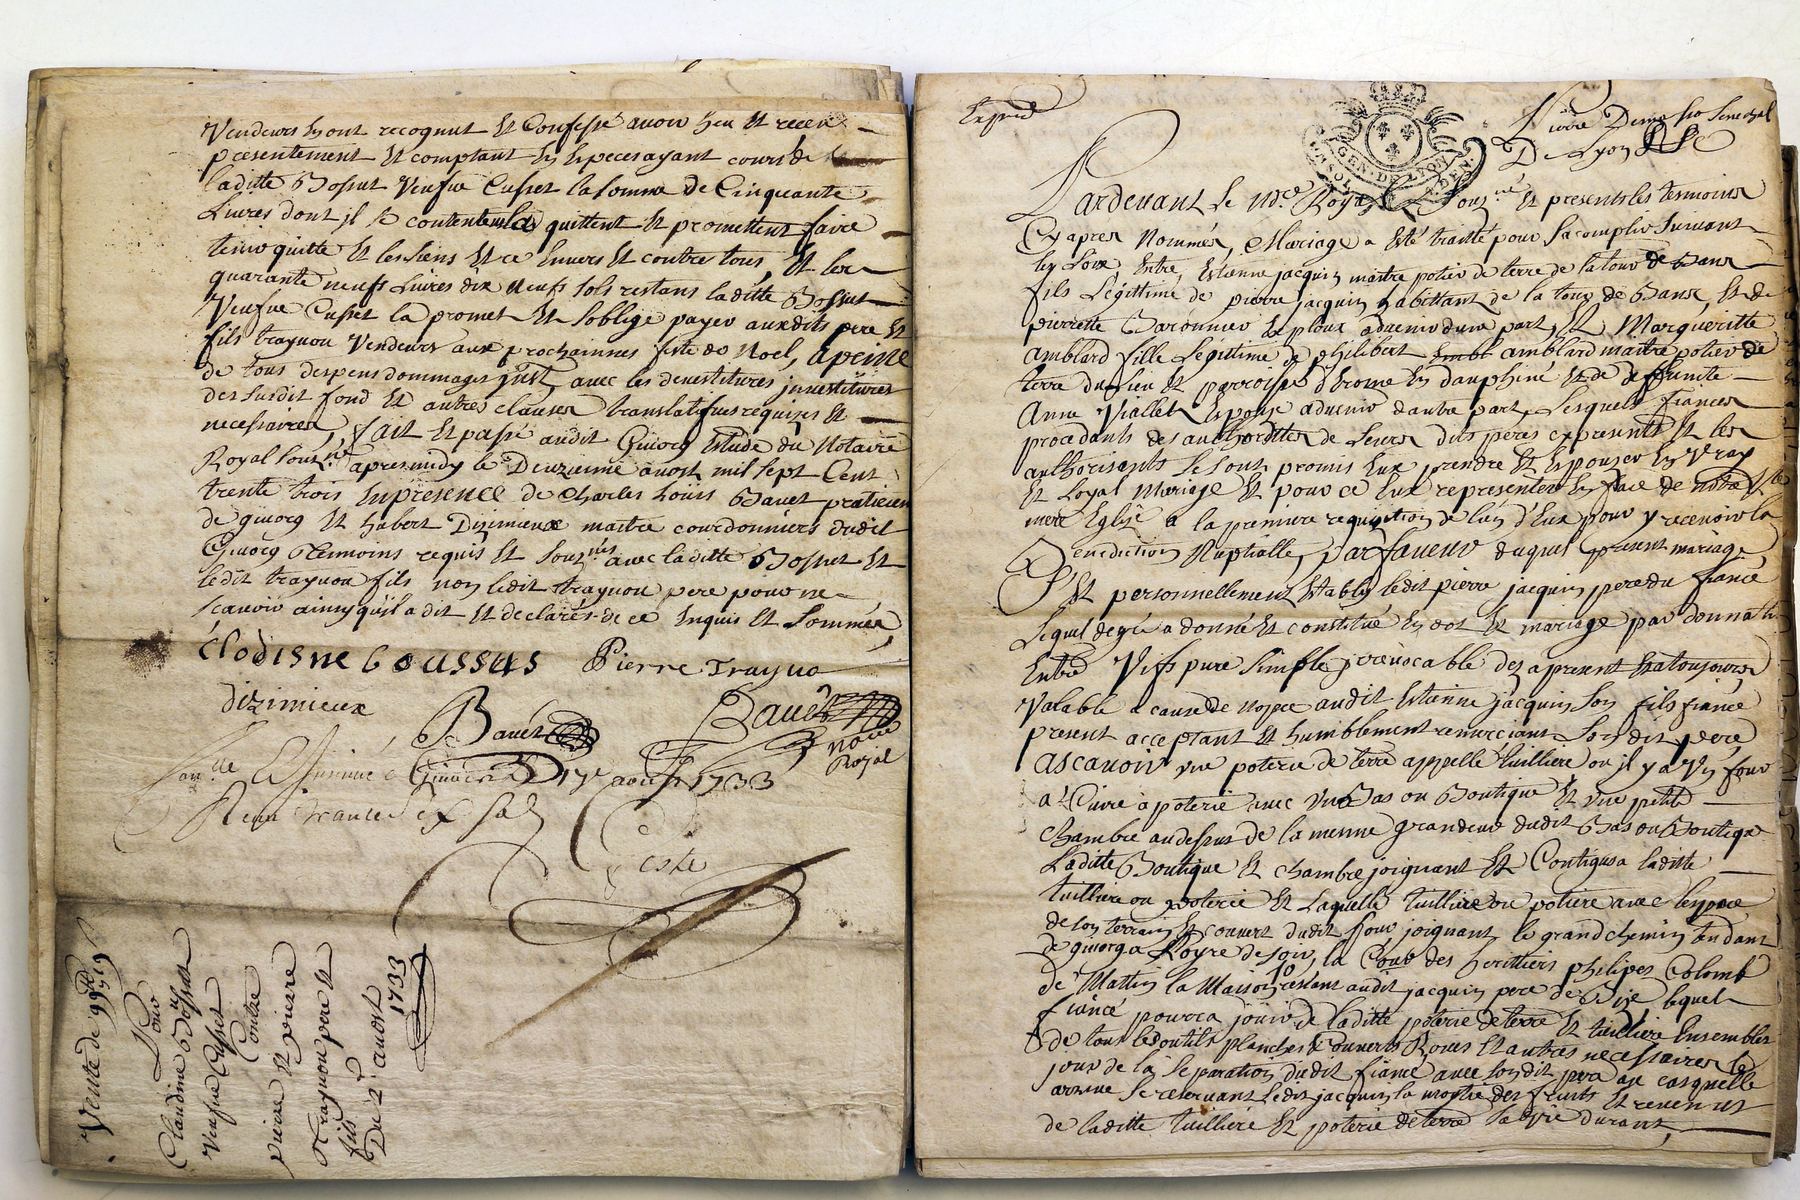 Vendeurs hont recognut et Confessé avoir heu et receu
présentement et comptant En Especes ayant cours de
laditte Bossut Veufve Cusset la somme de Cinquante
Livres dont il se contentent la quittent et promettent faire
tenir quitte et les siens et ce Envers et contre tous, et les
quarante neufs Livres dix neufs sols restans laditte Bossut
Veufve Cusset la promet et soblige payer auxdits pere et
fils traynou Vendeurs aux prochainnes feste de Noel, a peine
de tous despens dommages just avec les devestitures jnvestitures
des susdit fond et autres clauses translatifves requizes et
necessaires, fait et passé audit Givorq Estude du Notaire
Royal souz.né apresmidy le Deuzieme aoust mil sept Cent
trente trois En presence de Charles Loüis Bavet praticien
de givorq et hubert Dizimieux maitre courdonniers dudit
Givorq temoins requis et souz.nés avec laditte Bossut et
ledit traynou fils, non ledit traynou pere pour ne
scavoir ainsy qu'il a dit et declarés de ce Enquis et sommés,
Clodisne boussus Pierre Trayno
dizimieux
Bavet Bavet
no.re Royal
Con.lle a Givorcq Le 17e aoust 1733
Reçu trante six sols
Teste
Vente de 99tt 19s
Pour
Claudine Bossut
Veufve Cusset
Contre
pierre et pierre
Traynou pere et
fils
Du 2e aoust
1733
Expedié
Pierre Dumas
Senechal
De Lyon
GEN. DE LYON
Pardevant le No.re Royal Souz.né et presents les temoins
Cy apres Nommés, Mariage a Esté traitté pour sacomplir suivant
les Loix Entre, Estienne jacquin maitre potier de terre de la tour de Bans
fils Légittime de pierre jacquin habittant de la tour de Bans, et de
pierrette Baronnier Epoux advenir dune part, et Margueritte
amblard fille Légittime de philibert amblard maitre potier de
terre du lieu et parroisse d'Erome En dauphiné et de deffunte
Anne Viallet Epouse advenir dautre part, Lesquels fiancés
procedants des authorittés de Leurs dits pères cy presents et les
authorisants se sont promis Eux prendre et Epouzer En Vray
et Loyal Mariage et pour ce Eux représenter En face de notre Ste
mere Eglise a la premiere requisition de lun d'Eux pour y recevoir la
Benediction Nuptialle, par faveur duquel present mariage
S'est personnellement Estably ledit pierre jacquin pere du fiancé
Lequel de gré a donné et constitué En dot et mariage par donnation
Entre Vifs pure simple jrrevocable dez a present Et a toujours
Valable a cause de nopce audit Estienne jacquin son fils fiancé
present acceptant et humblement remerciant Son dit pere
Ascavoir une poterie de terre appellé tuilliere ou il y a Un four
a Cuire a poterie avec Un Bas ou Boutique et une petite
Chambre au dessus de la meme grandeur dudit Bas ou Boutique
Laditte Boutique et chambre joignant et Contigus a laditte
tuilliere ou poterie et Laquelle tuilliere ou potiere avec lespace
de son terrain et couvert dudit four joignant le grand chemin tendant
de givorq a Royre de soir, la Cour des heritiers philipes Colomb
de Matin la Maison restant audit jacquin pere de Bize lequel
fiancé pourra jouir de laditte poterie de terre et tuilliere Ensembles
de tous les outils planches Roues et autres necessaires le
jour de la Separation dudit fiancé avec son dit pere au cas quelle
arrive se reservant ledit jacquin la moytié des fruits et revenus
de laditte tuilliere et poterie de terre sa vie durant,